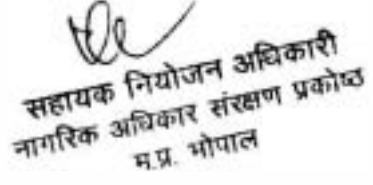 सहायक नियोजन अधिकारी
नागरिक अधिकार संरक्षण प्रकोष्ठ
म.प्र. भोपाल